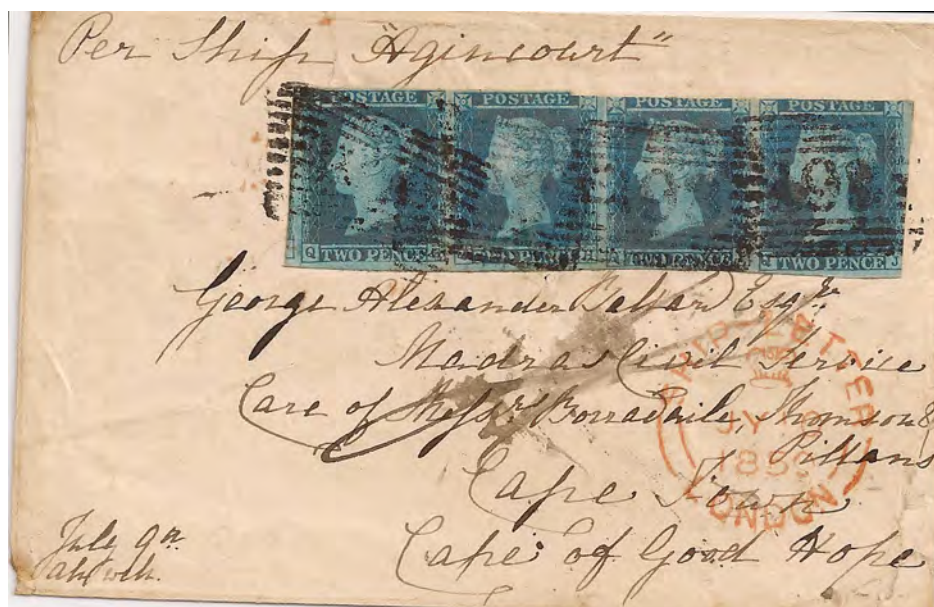 Per Ship "Agincourt"
POSTAGE POSTAGE POSTAGE POSTAGE
Q TWO PENCE G TWO PENCE H TWO PENCE TWO PENCE J
George Alexander Esqre
Madras Civil Service
Care of Messrs Borradaile, Thomson &
Pillans
Cape Town
Cape of Good Hope
SHIP-LETTER
JY
185
LONDON
July 9th